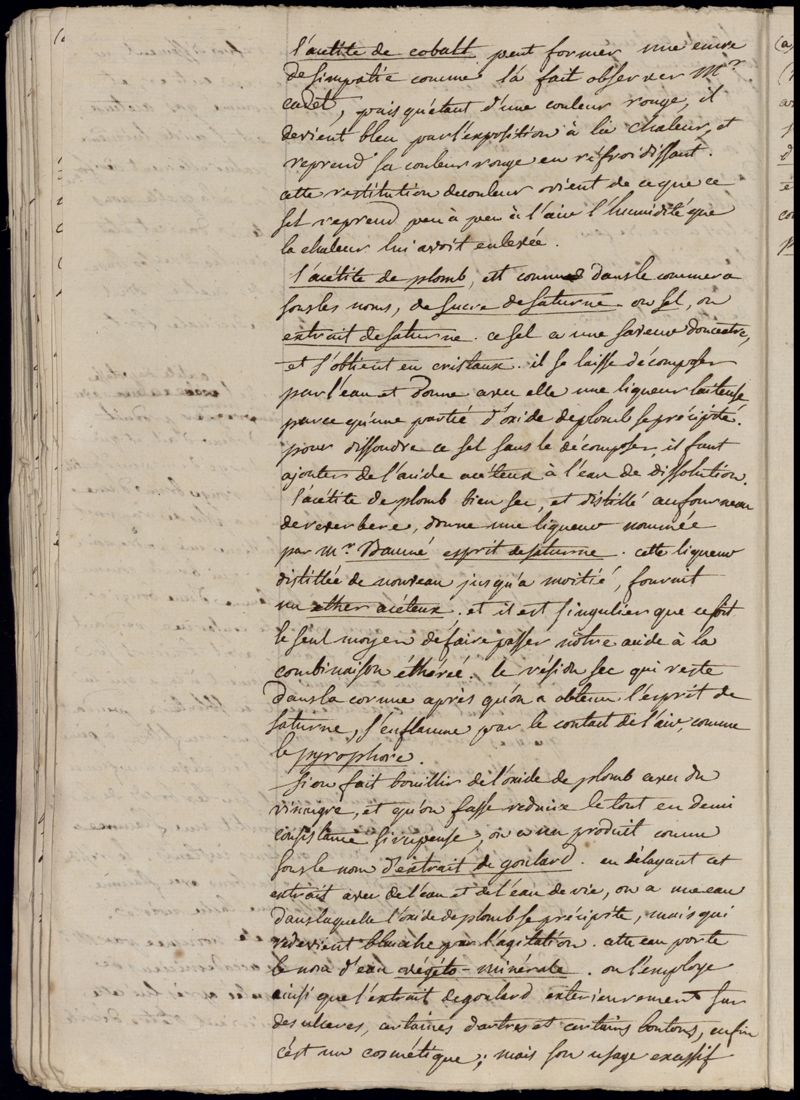 l'acétite de cobalt peut former une encre
de simpatie comme l'a fait observer Mr
cadet, puisqu'étant d'une couleur rouge, il
devient bleu par l'exposition à la chaleur, et
reprend sa couleur rouge en refroidissant.
cette restitution de couleur vient de ce que ce
sel reprend peu à peu à l'air l'humidité que
la chaleur lui avoit enlevée.
l'acétite de plomb, est connu dans le commerce
sous les noms, de sucre de saturne ou sel, ou
extrait de saturne. ce sel a une saveur douceatre,
et s'obtient en cristaux. il se laisse décomposer
par l'eau et donne avec elle une liqueur laiteuse
parce qu'une partie d'oxide de plomb se précipite.
pour dissoudre ce sel sans le décomposer, il faut
ajouter de l'acide acéteux à l'eau de dissolution.
l'acétite de plomb bien sec, et distillé au fourneau
de reverbere, donne une liqueur nommée
par Mr. Baumé esprit de saturne. cette liqueur
distillée de nouveau jusqu'a moitié, fournit
un ether acéteux. et il est singulier que ce soit
le seul moyen de faire passer nôtre acide à la
combinaison éthérée. le résidu sec qui reste
dans la cornue après qu'on a obtenu l'esprit de
saturne, s'enflamme par le contact de l'air, comme
le pyrophore.
Si on fait bouillir de l'oxide de plomb avec du
vinaigre, et qu'on fasse reduire le tout en demi
consistance sirupeuse, on a un produit connu
sous le nom d'extrait de goulard. en délayant cet
extrait avec de l'eau et de l'eau de vie, on a une eau
dans laquelle l'oxide de plomb se précipite, mais qui
redevient blanche par l'agitation. cette eau porte
le nom d'eau végéto-minérale. on l'employe
ainsi que l'extrait de goulard exterieurement sur
des ulceres, certaines dartres et certains boutons, enfin
c'est un cosmétique; mais son usage excessif